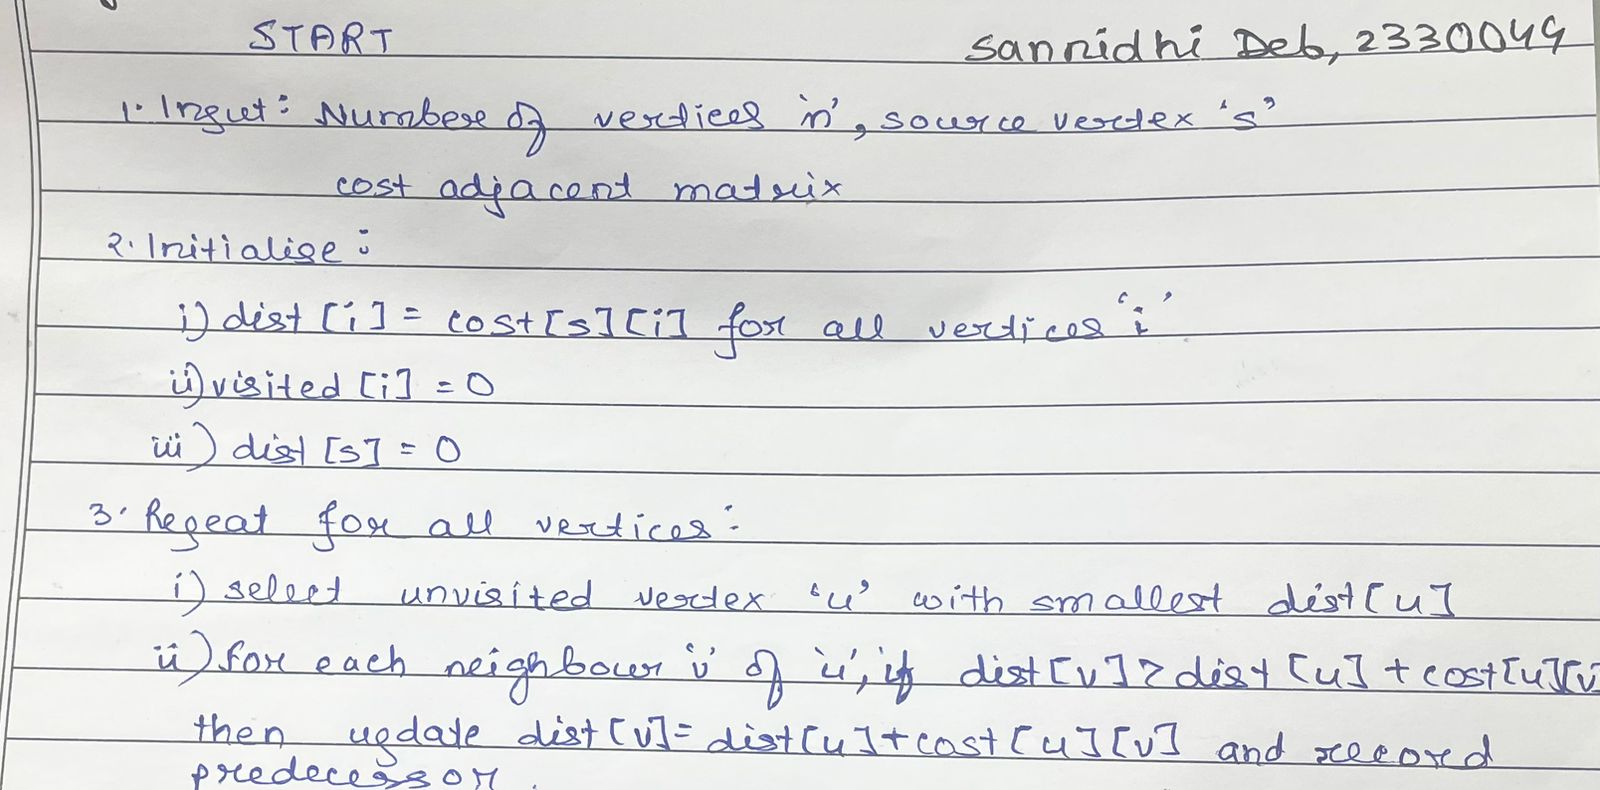 START
Sannidhi Deb, 2330049
1. Input: Number of vertices 'n', source vertex 's'
cost adjacent matrix
2. Initialise:
i) dist [i] = cost[s][i] for all vertices 'i'
ii) visited [i] = 0
iii) dist [s] = 0
3. Repeat for all vertices:
i) select unvisited vertex 'u' with smallest dist[u]
ii) for each neighbour 'v' of 'u', if dist[v] > dist [u] + cost[u][v
then update dist [v] = dist[u] + cost [u][v] and record
predecessor.